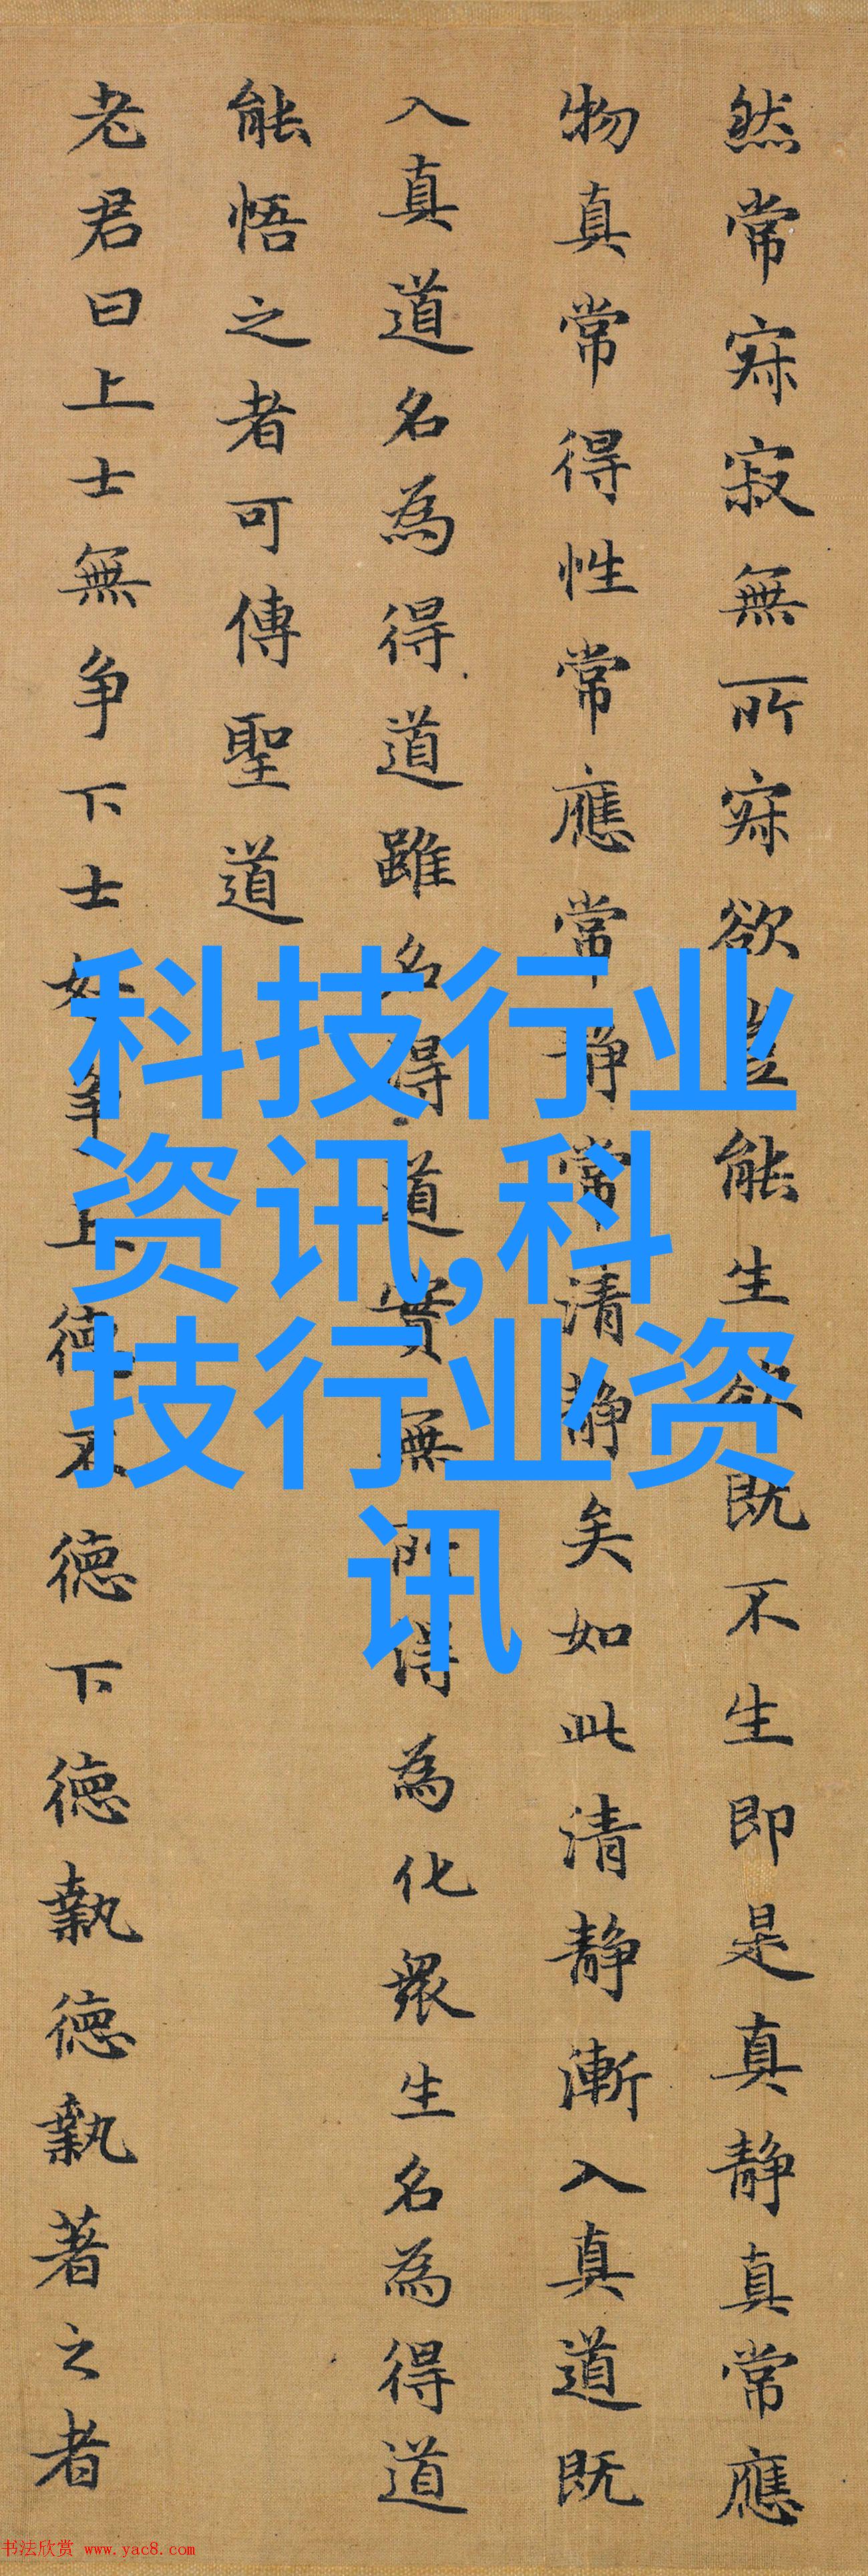 然常寂寂無所寂欲豈能生欲既不生即是真静真常應
物真常得性常應常静常清静矣如此清静漸入真道既
入真道名為得道雖名得道實無所得為化衆生名為得道
能悟之者可傳聖道
老君曰上士無争下士好争上德不德下德執德執著之者
科技行业
资讯,科
技行业资
讯
书法欣赏 www.yac8.com